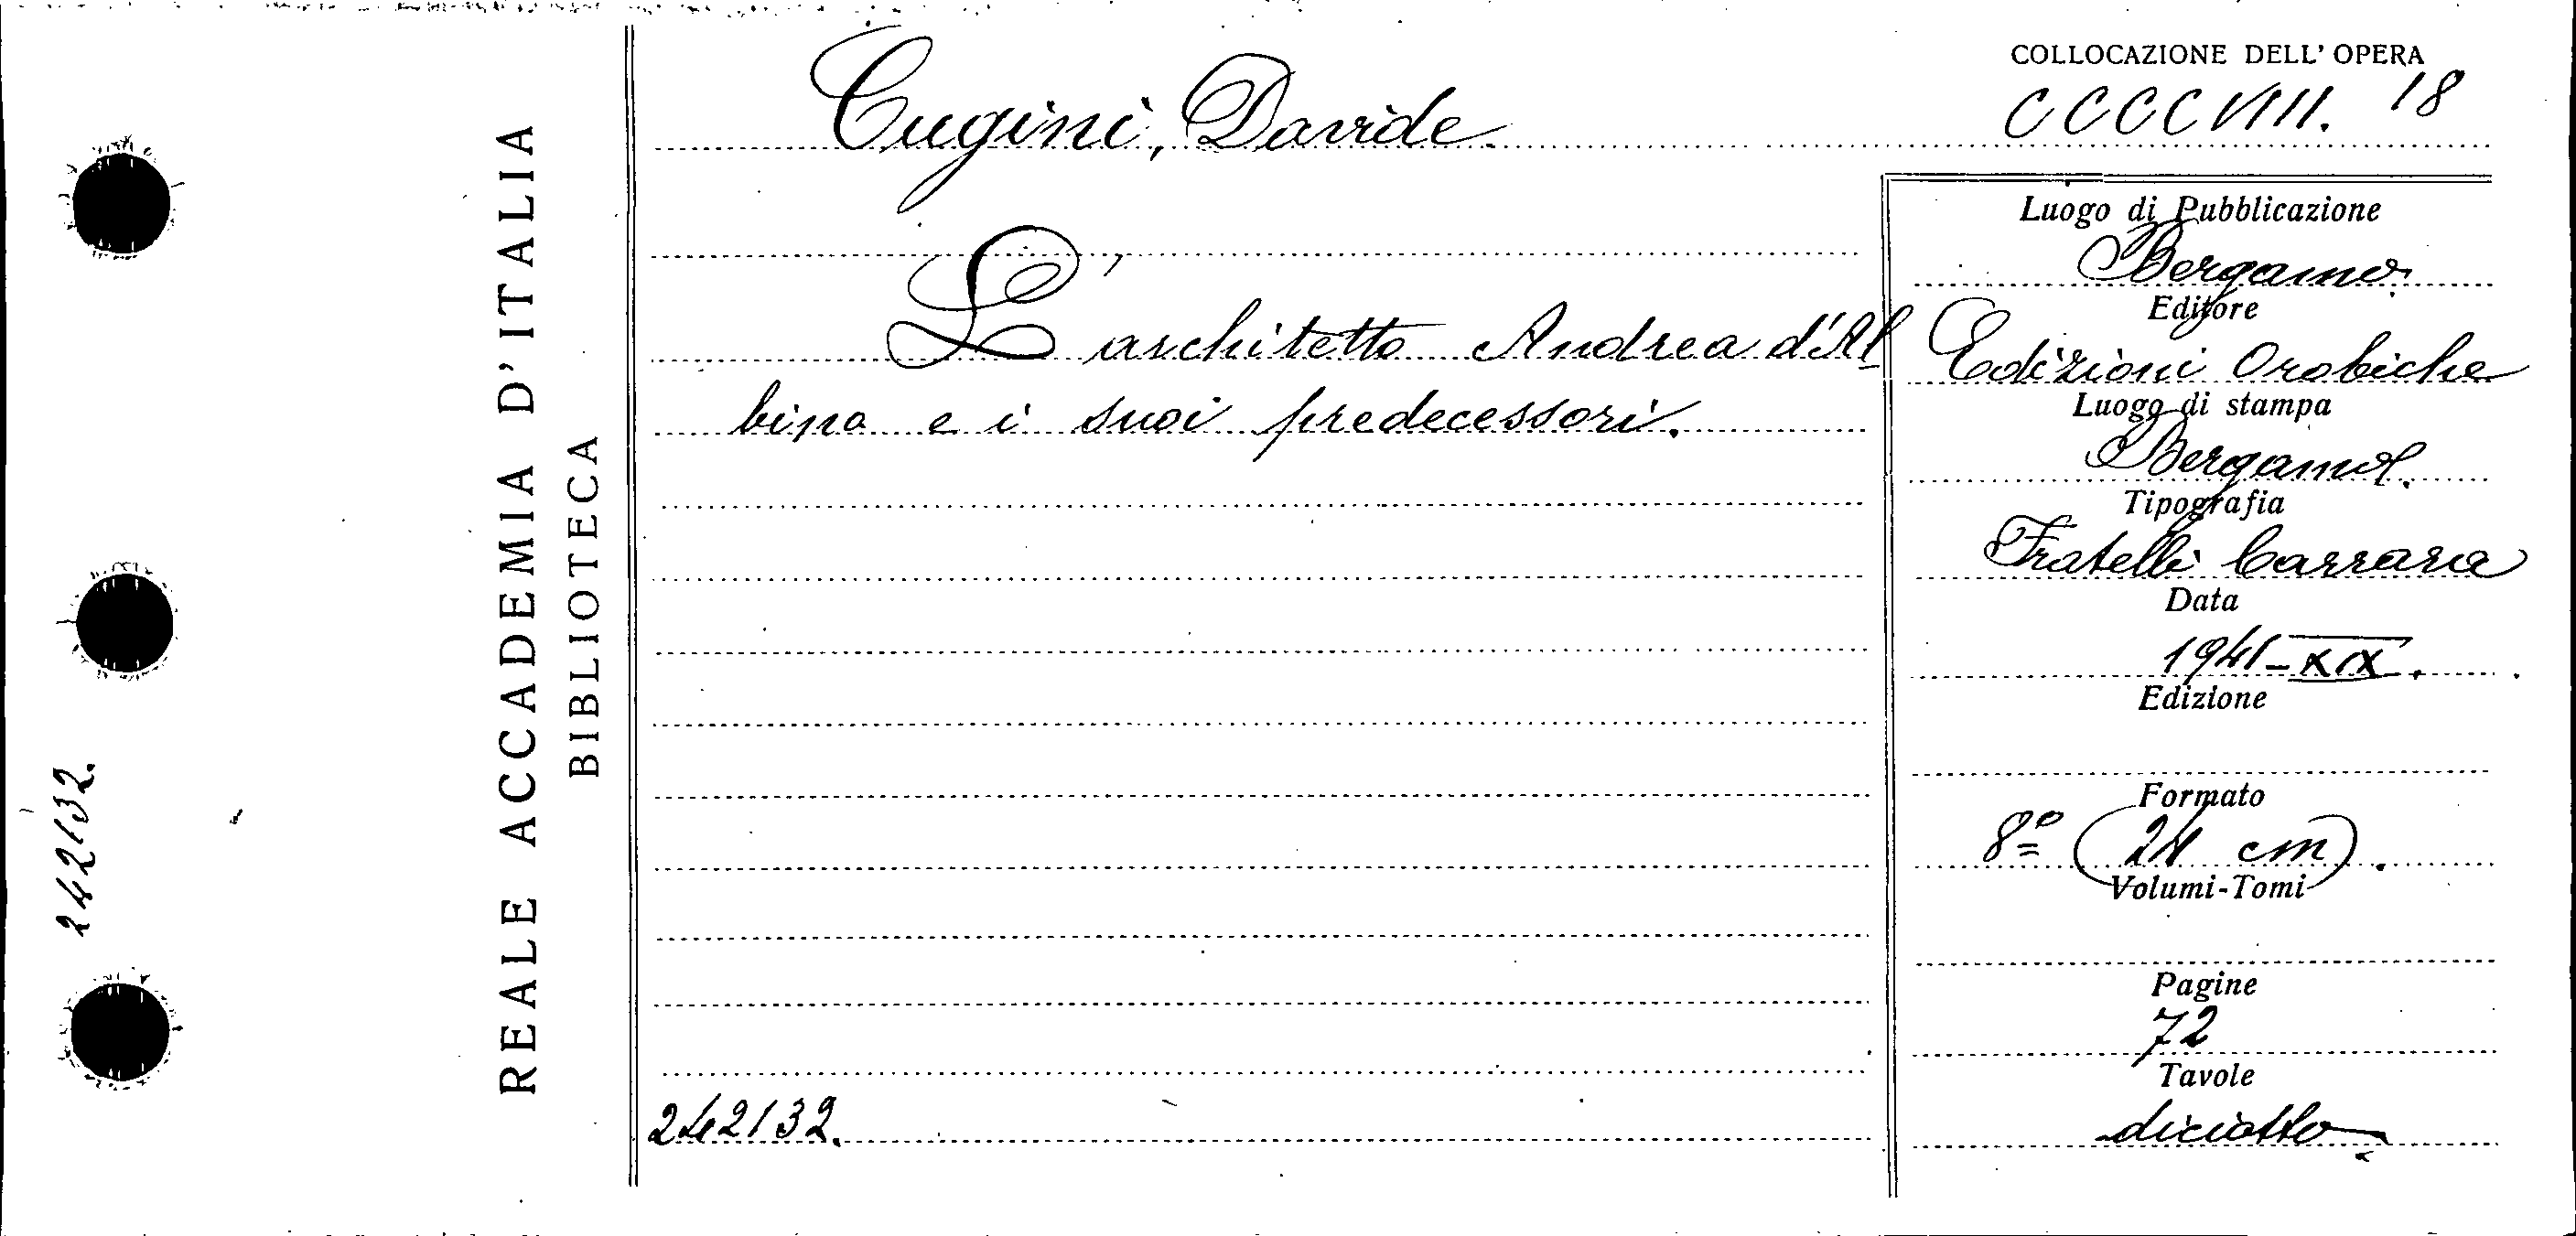 REALE ACCADEMIA D'ITALIA
BIBLIOTECA
242132.
Cugini, Davide.
L'architetto Andrea d'Al
bino e i suoi predecessori.
242132.
COLLOCAZIONE DELL'OPERA
CCCCVIII. 18
Luogo di Pubblicazione
Bergamo.
Editore
Edizioni Orobiche
Luogo di stampa
Bergamo.
Tipografia
Fratelli Carrara
Data
1941-XIX.
Edizione
Formato
8º (24 cm).
Volumi-Tomi
Pagine
72
Tavole
diciotto